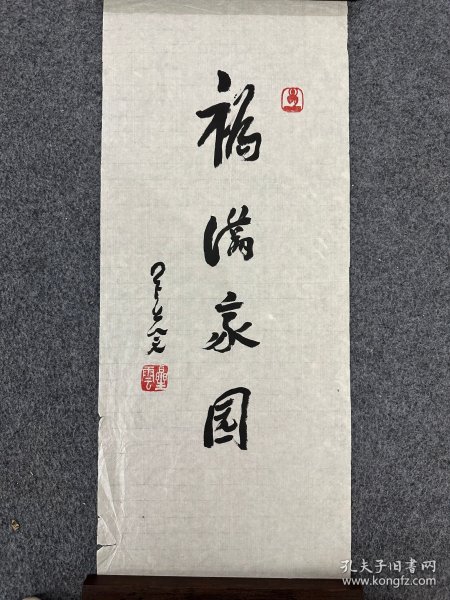 福满家园
星雲
孔夫子旧书网
www.kongfz.com